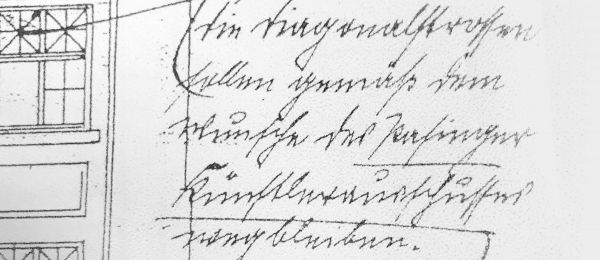 Die Diagonalsprossen
sollen gemäß dem
Wunsche des Pasinger
Künstlerausschusses
wegbleiben.